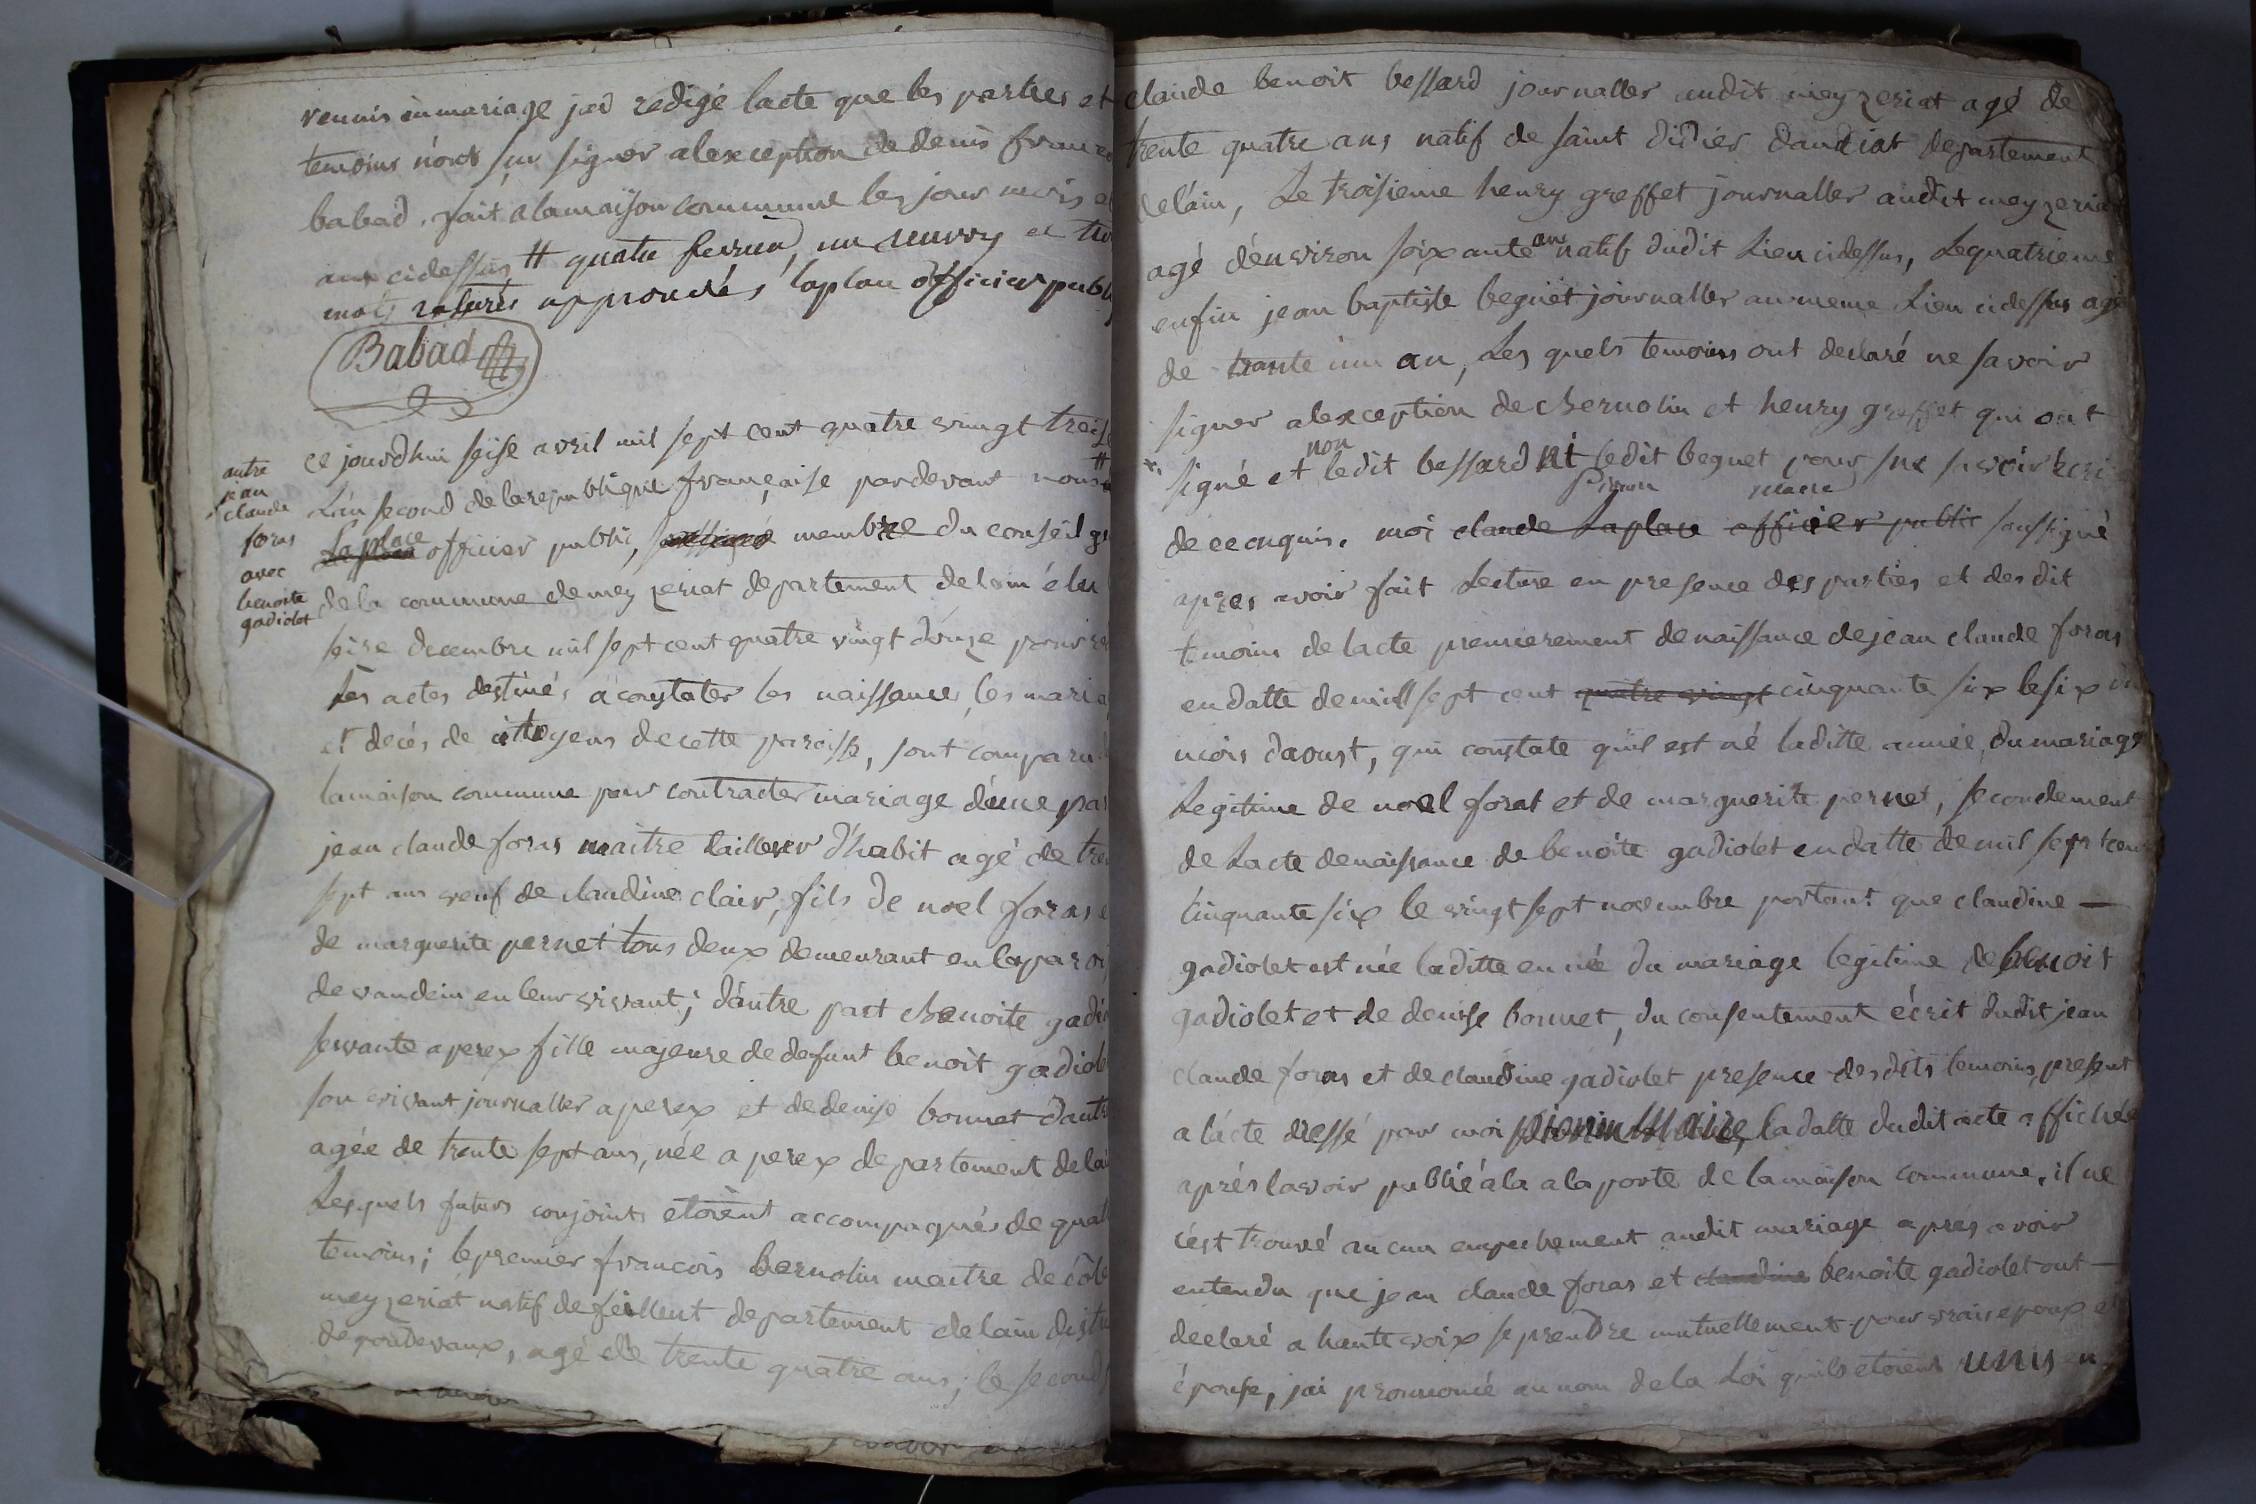 reunis en mariage jai redigé lacte que les parties et
temoins n'ont su signer alexception de denis
babad. fait alamaison commune les jour mois et
an cidessus # quatre fevrier, un et
mots raturés approuvés laplace officier public
Babad
autre
jean
claude
foras
avec
benoite
gadiolet
ce jourdhui seise avril mil sept cent quatre vingt treise
L'an second delarepublique française pardevant nous #
Laplace officier public, soussigné membre du conseil
dela commune demeyzeriat departement delain élu
seise decembre mil sept cent quatre vingt douze pour
Les actes destinés aconstater les naissances, les
et decés de citoyens decette paroisse, sont comparu
lamaison commune pour contracter mariage d'une part
jean claude foras maitre tailleur d'habit agé de
sept ans veuf de claudine clair, fils de noel foras
de marguerite pernet tous deux demeurant en laparoi
de vandein en leur vivant; d'autre part benoite
servante aperex fille majeure dedefunt benoit gadiolet
son vivant journallier aperex et dedenise bonnet d'autre
agée de trente sept ans, née a perex departement delain
Lesquels futurs conjoints etoient accompagnés de
temoins; lepremier francois bernolin maitre decôle
meyzeriat natif defeillent departement delain
depondevaux, agé de trente quatre ans; le second
claude benoit bessard journallier audit meyzeriat agé de
trente quatre ans natif de saint didier daussiat departement
delain, Le troisieme henry greffet journallier audit meyzeriat
agé d'environ soixante ans natif dudit Lieu cidessus, Lequatrieme
enfin jean baptiste beguet journallier aumeme Lieu cidessus agé
de trante un an, Les quels temoins ont declaré ne savoir
signer alexception de bernolin et henry greffet qui ont
signé et non ledit bessard ni ledit beguet pour ne savoir
de cerequis. moi claude Laplace officier public Piron maire soussigné
apres avoir fait Lecture en presence des parties et des dit
temoins de lacte premierement denaissance dejean claude foras
endatte demill sept cent quatre vingt cinquante six lesix du
mois daoust, qui constate quil est né laditte année, du mariage
Legitime de noel foras et de marguerite pernet, secondement
de Lacte denaissance de benoite gadiolet endatte demil sept cent
cinquante six le vingt sept novembre portant que claudine —
gadiolet est née laditte année du mariage legitime de benoit
gadiolet et de denise bonnet, du consentement écrit dudit jean
claude foras et de claudine gadiolet presence desdits temoins, present
a lacte dressé par moi maire, ladatte dudit acte affichée
aprés lavoir publié ála alaporte de lamaison commune, il ne
cést trouvé aucun empechement audit mariage aprés avoir
entendu que jean claude foras et claudine benoite gadiolet ont —
declaré a haute voix se prendre mutuellement pour vrais epoux et
épouse, jai prononcé aunom dela Loi quils etoient unis en